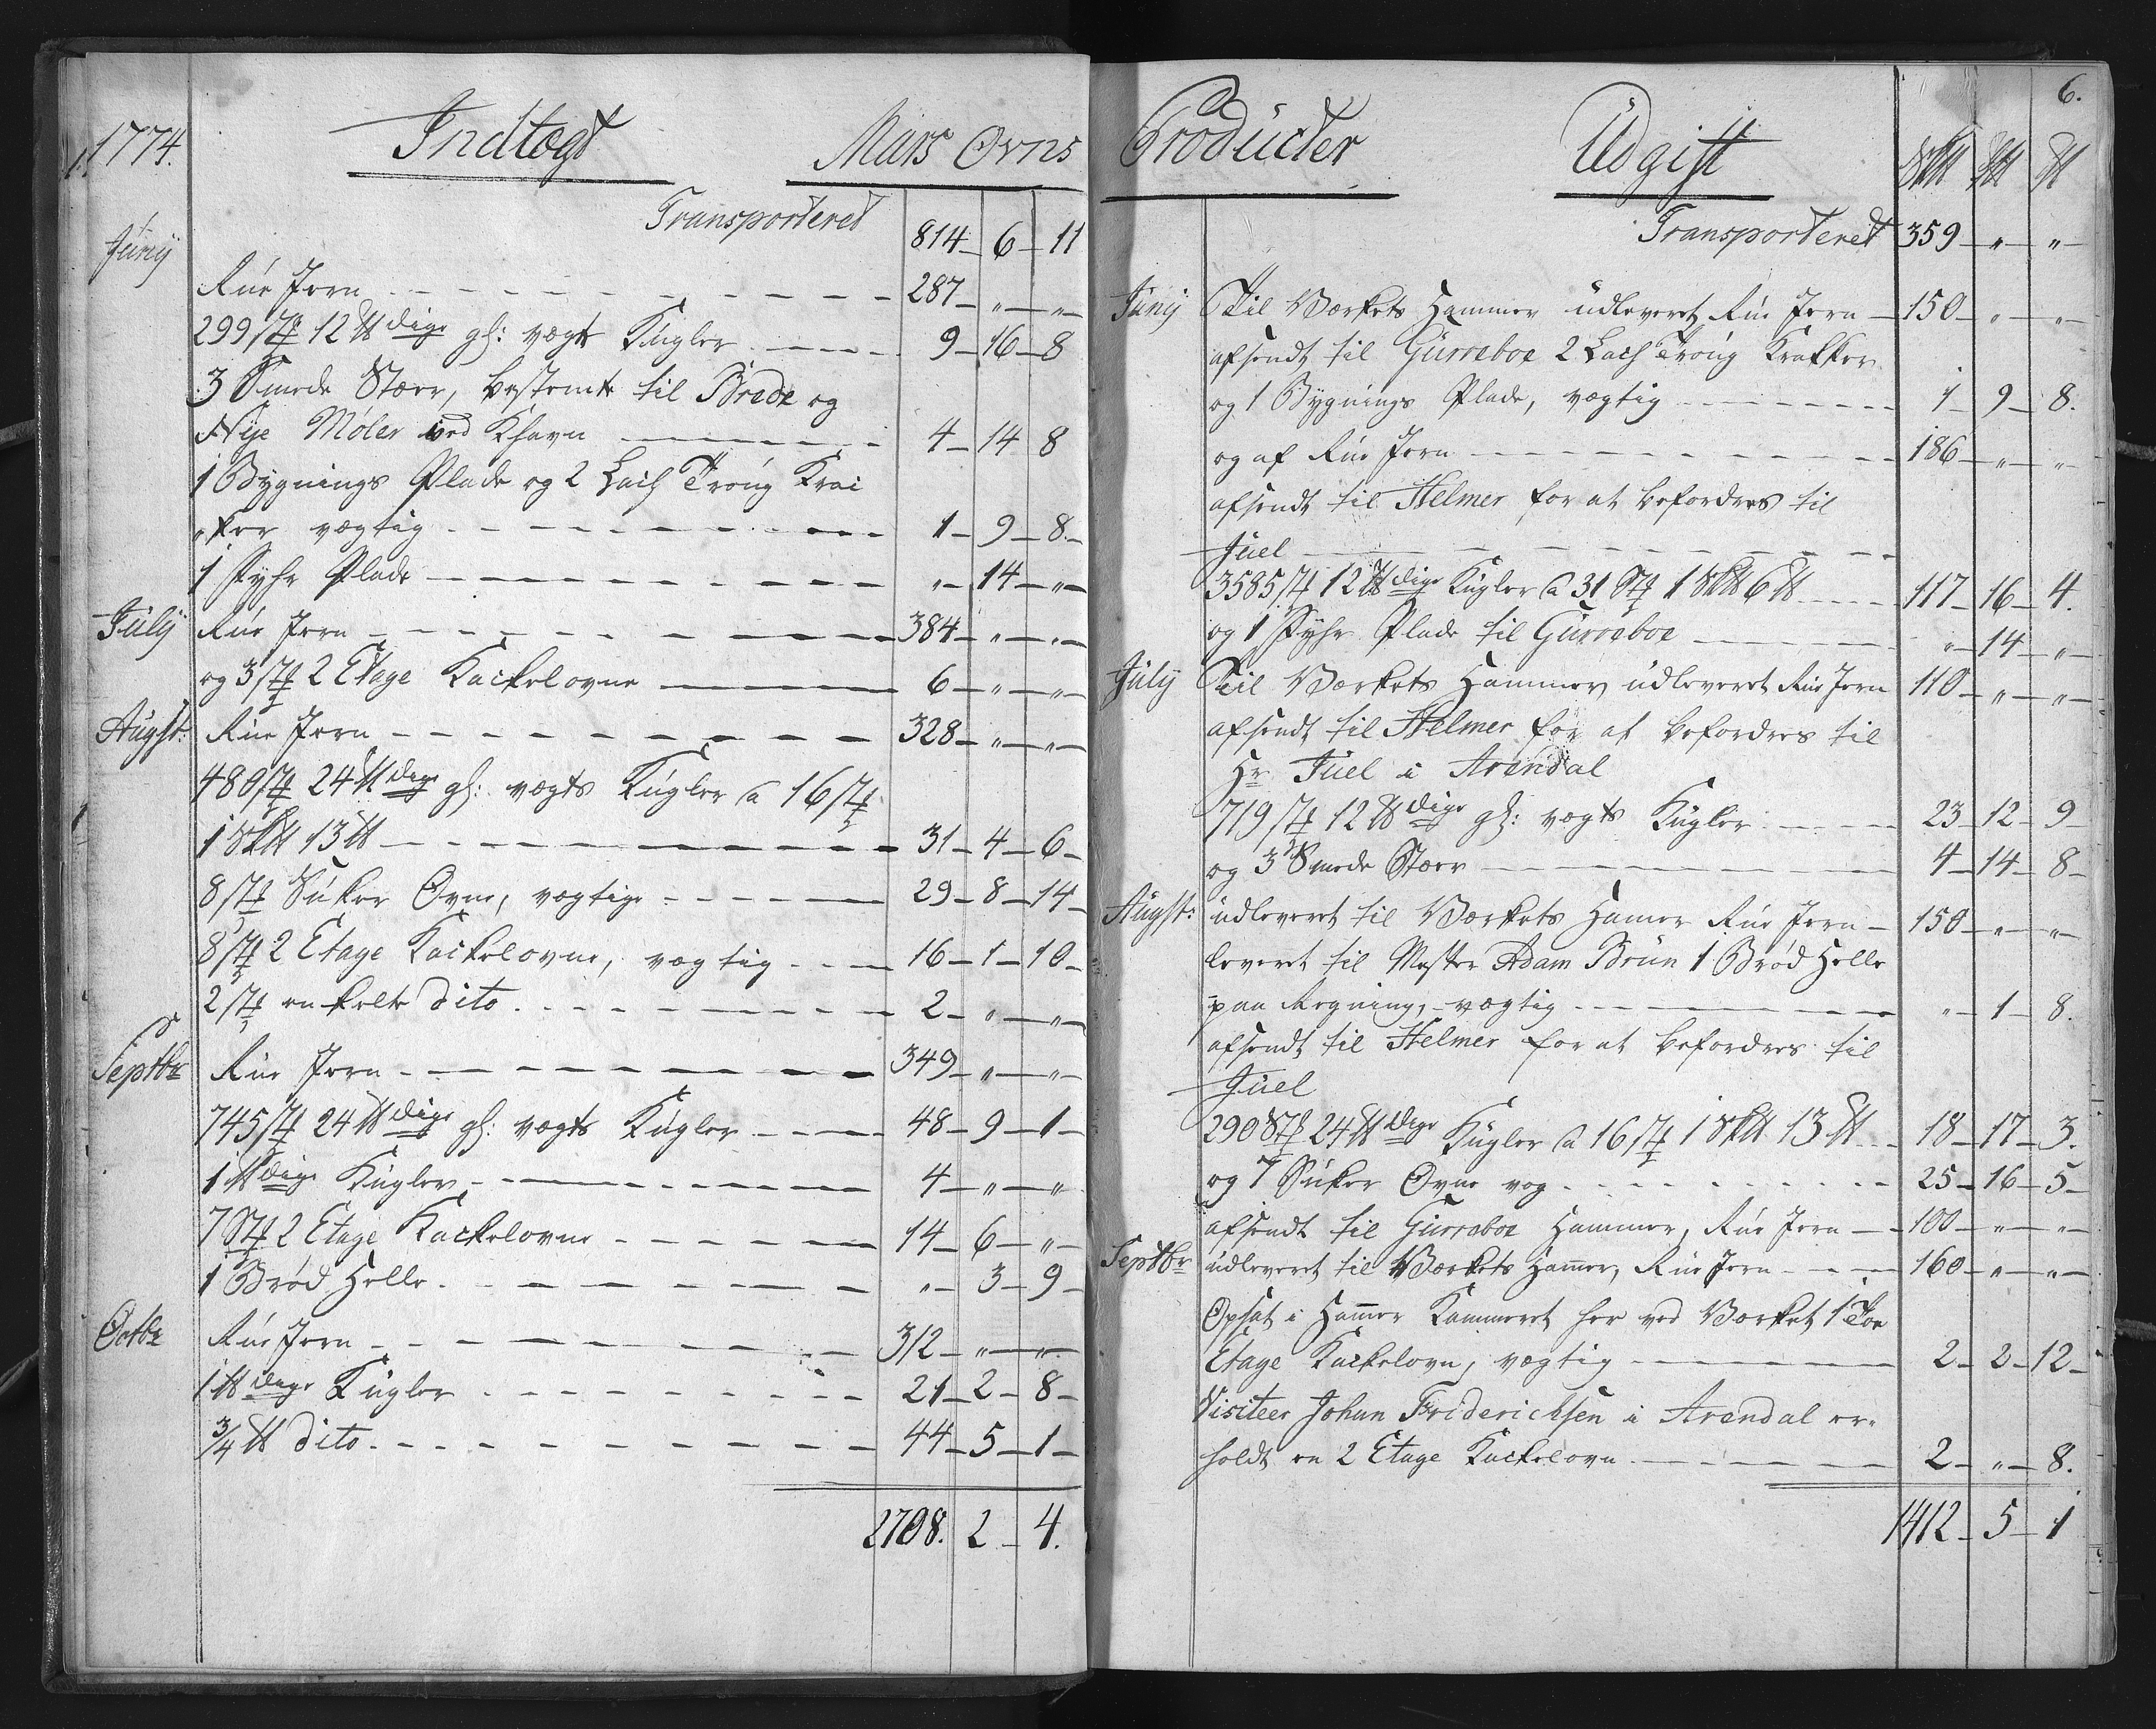 1774.
Indtægt
Mars Ovns
Transporteret 814 - 6 - 11
Junij
Rue Jern - 287 - " - "
299 St 12 ℔dige gl: vægts Kugler - 9 - 16 - 8
3 Smede Stær, bestemte til Brede og
Nye Møler ved Khavn - 4 - 14 8
1 Bygnings Plade og 2 Lach Troug Krai
"ker vægtig - 1 - 9 - 8 -
1 Fyhr Plade - " - 14 - "
July Rue Jern - 384 - " - "
og 3 St 2 Etage Kackelovne - 6 - " - "
Augst: Rue Jern - 328 - " - "
480 St 24 ℔dige gl: vægts Kugler a 16 St
1 S℔ 13 ℔ - 31 - 4 - 6 -
8 St Suker Ovne, vægtige - 29 - 8 - 14 -
8 St 2 Etage Kackelovne, vægtig - 16 - 1 - 10 -
2 St enkelte dito - 2 - " - "
Septbr Rue Jern - 349 - " - "
745 St 24 ℔dige gl: vægts Kugler - 48 - 9 - 1 -
1 ℔dige Kugler - 4 - " - "
7 St 2 Etage Kackelovne - 14 - 6 - "
1 Brød Helle - " - 3 - 9 -
Octbr Rue Jern - 312 - " - "
1 ℔dige Kugler - 21 - 2 - 8 -
3/4 ℔ dito - 44 - 5 - 1 -
2708. 2 - 4.
6.
Producter
Udgift
S℔ L℔ ℔
Transporteret 359 - " - "
Junij Til Værkets Hammer udleveret Rue Jern - 150 - " - "
afsendt til Gurreboe 2 Lach Troug Krakker
og 1 Bygnings Plade, vægtig - 1 - 9 - 8.
og af Rue Jern - 186 - " - "
afsendt til Helmer for at befordres til
Juel -
3585 St 12 ℔dige Kugler a 31 St 1 S℔ 6 ℔ - 117 - 16 - 4.
og 1 Fyhr Plade til Gurreboe - " - 14 - "
July Til Værkets Hammer udleveret Rue Jern 110 - " - "
afsendt til Helmer for at befordres til
Hr Juel i Arendal
719 St 12 ℔dige gl: vægts Kugler - 23 - 12 - 9 -
og 3 Smede Stær - 4 - 14 - 8 -
Augst: udleveret til Værkets Hamer Rue Jern - 150 - " - "
leveret til Mester Adam Brun 1 Brød Helle
paa Regning, vægtig - " - 1 - 8.
afsendt til Helmer for at befordres til
Juel
290 St 24 ℔dige Kugler a 16 St 1 S℔ 13 ℔ - 18 - 17 - 3.
og 7 Suker Ovne vog - 25 - 16 - 5 -
afsendt til Gurreboe Hammer, Rue Jern - 100 - " - "
Septbr udleveret til Værkets Hamer, Rue Jern - 160 - " - "
Opsat i Hamer Kammeret her ved Værket 1 Toe
Etage Kackelovn, vægtig - 2 - 2 - 12 -
Visiteer Johan Friderichsen i Arendal er-
holdt en 2 Etage Kackelovn - 2 - " - 8.
1412 - 5 - 1